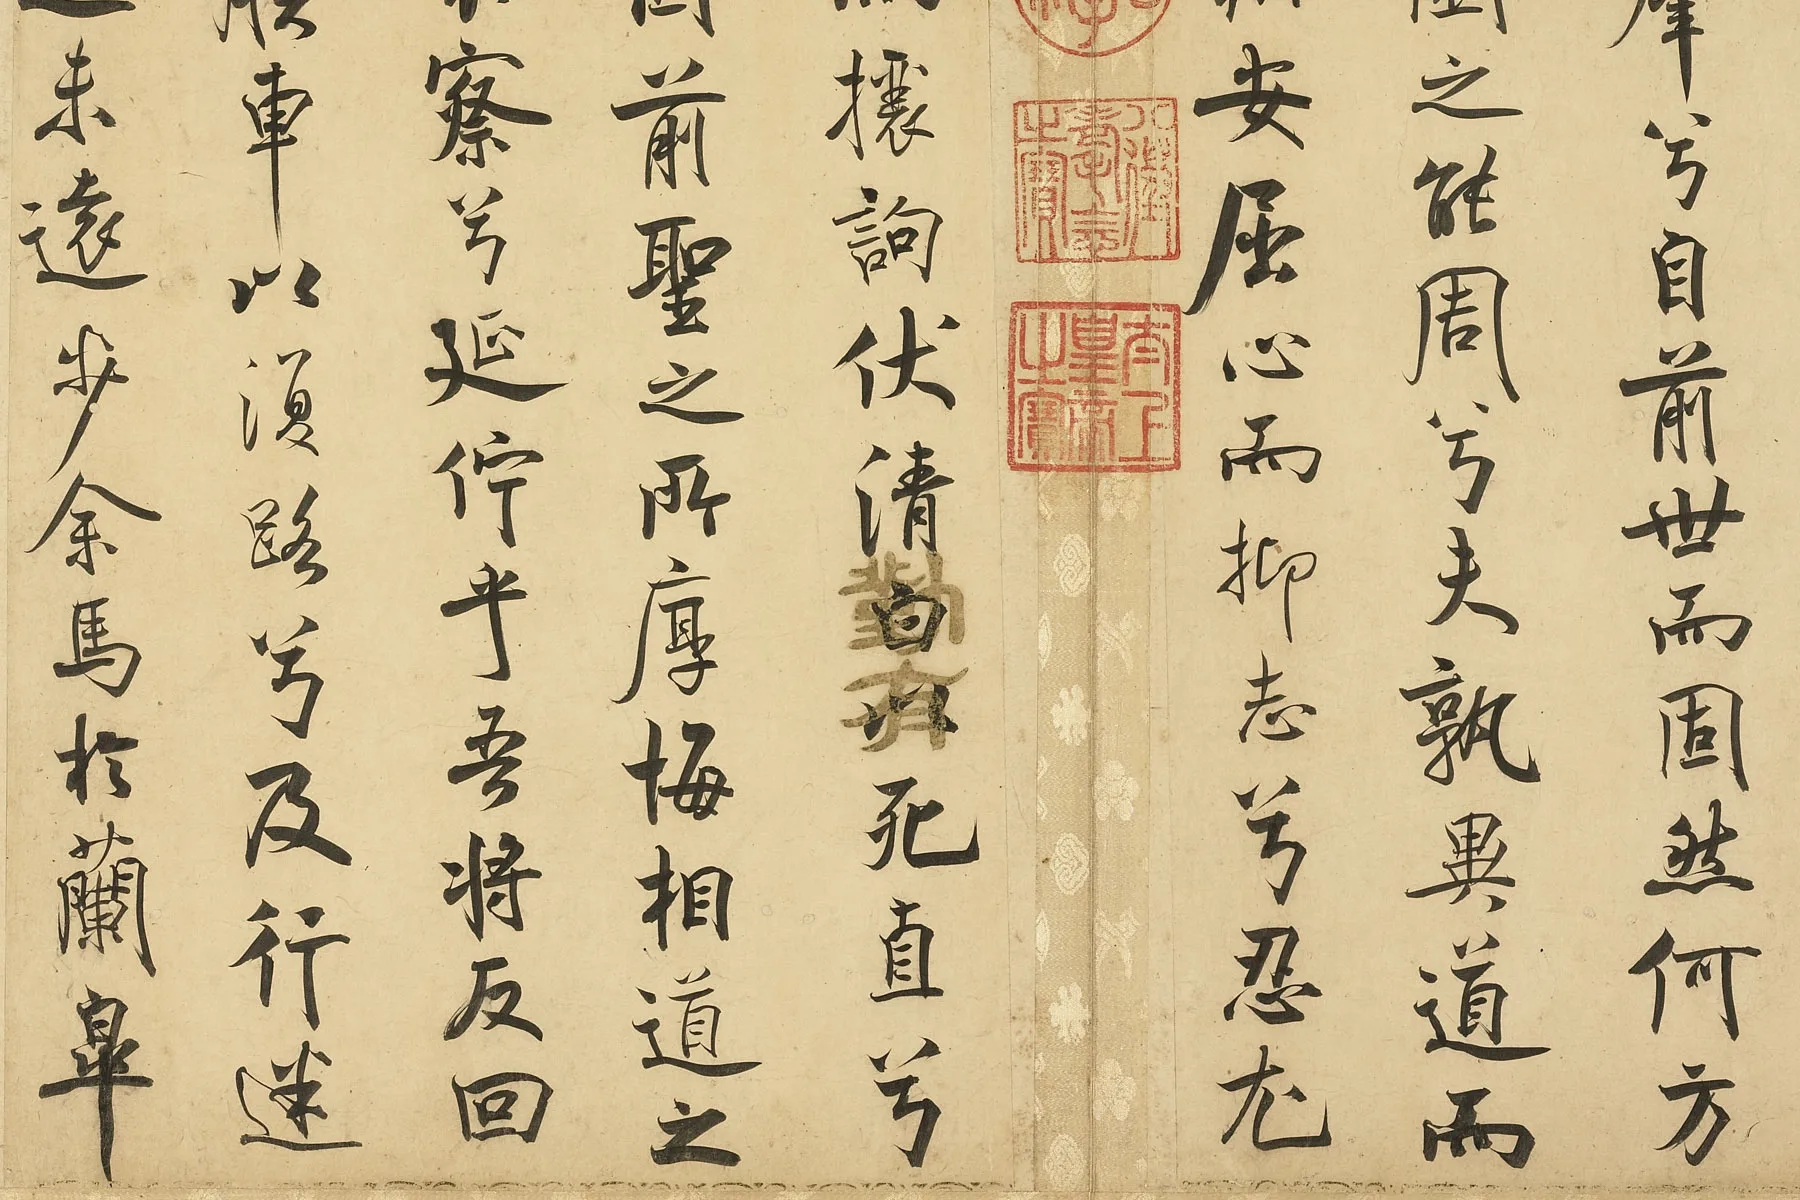 兮自前世而固然何方
之能周兮夫孰異道而
安屈心而抑志兮忍尤
八徵耄念之寶
太上皇帝之寶
攘詢伏清白以死直兮
前聖之所厚悔相道之
察兮延佇乎吾將反回
車以復路兮及行迷
未遠步余馬於蘭皐